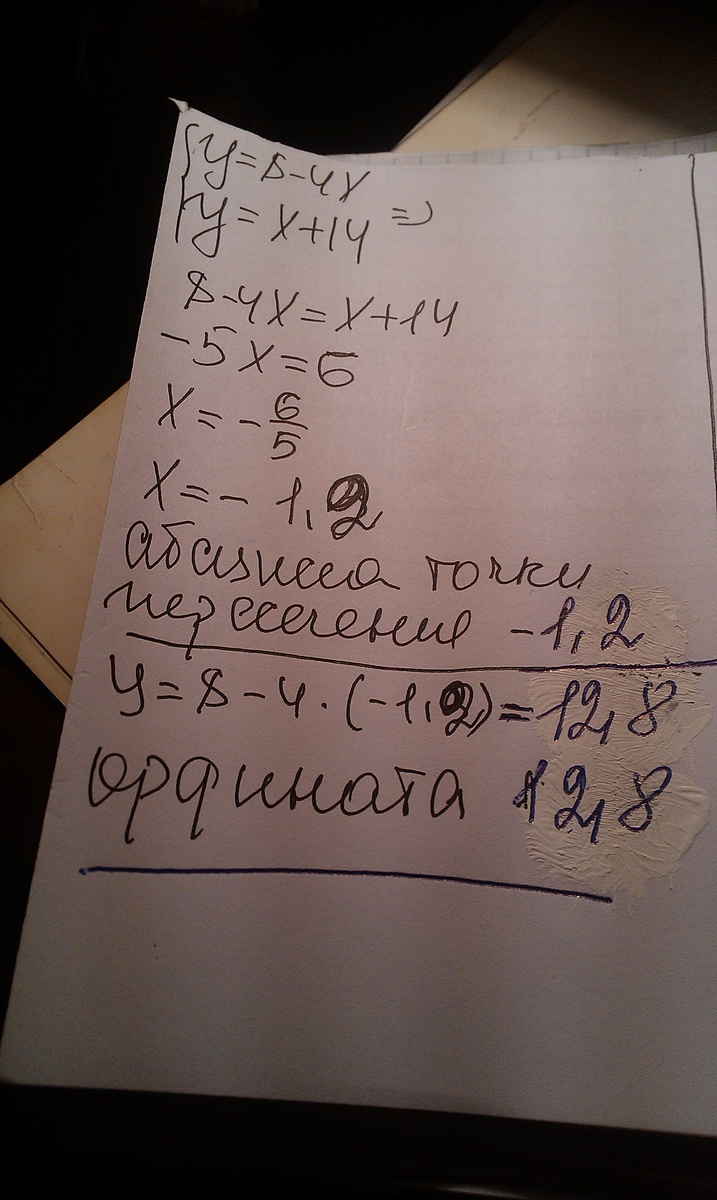 y=8-4x
y=x+14 =>
8-4x=x+14
-5x=6
x=-6/5
x=-1,2
абсцисса точки
пересечения -1,2
y=8-4·(-1,2)=12,8
ордината 12,8